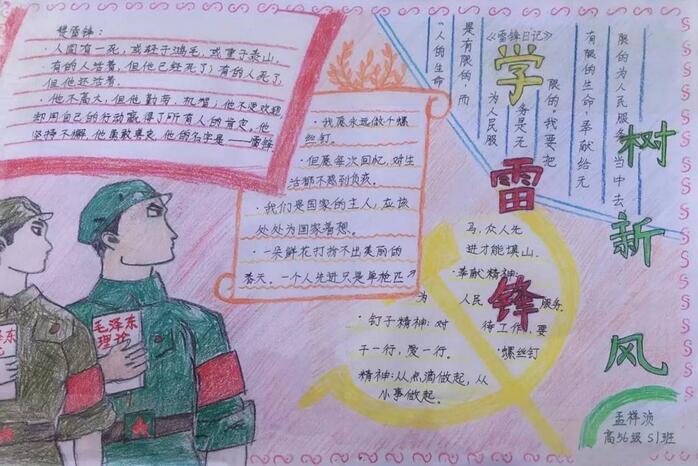 赞雷锋:
·人固有一死,或轻于鸿毛,或重于泰山,
有的人活着,但他已经死了;有的人死了
但他还活着.
·他不高大,但他勤劳,机智;他不受欢迎
却用自己的行动赢得了所有人的肯定。他
坚持不懈,他勇敢坚定,他的名字是——雷锋.
·我愿永远做个螺
丝钉.
·但愿每次回忆,对生
活都不感到负疚。
·我们是国家的主人,应该
处处为国家着想。
·一朵鲜花打扮不出美丽的
春天。一个人先进只是单枪匹
马,众人先
进才能填山.
·奉献精神:
为 人民 服务.
·钉子精神:对 待工作,要
干一行,爱一行. ·螺丝钉
精神:从点滴做起,从
小事做起。
《雷锋日记》
“人的生命
是有限的,而
为人民服
务是无
限的,我要把
有限的生命,奉献给无
限的为人民服务当中去
学雷锋
树新风
毛泽东
理论
孟祥滨
高36级 S1班